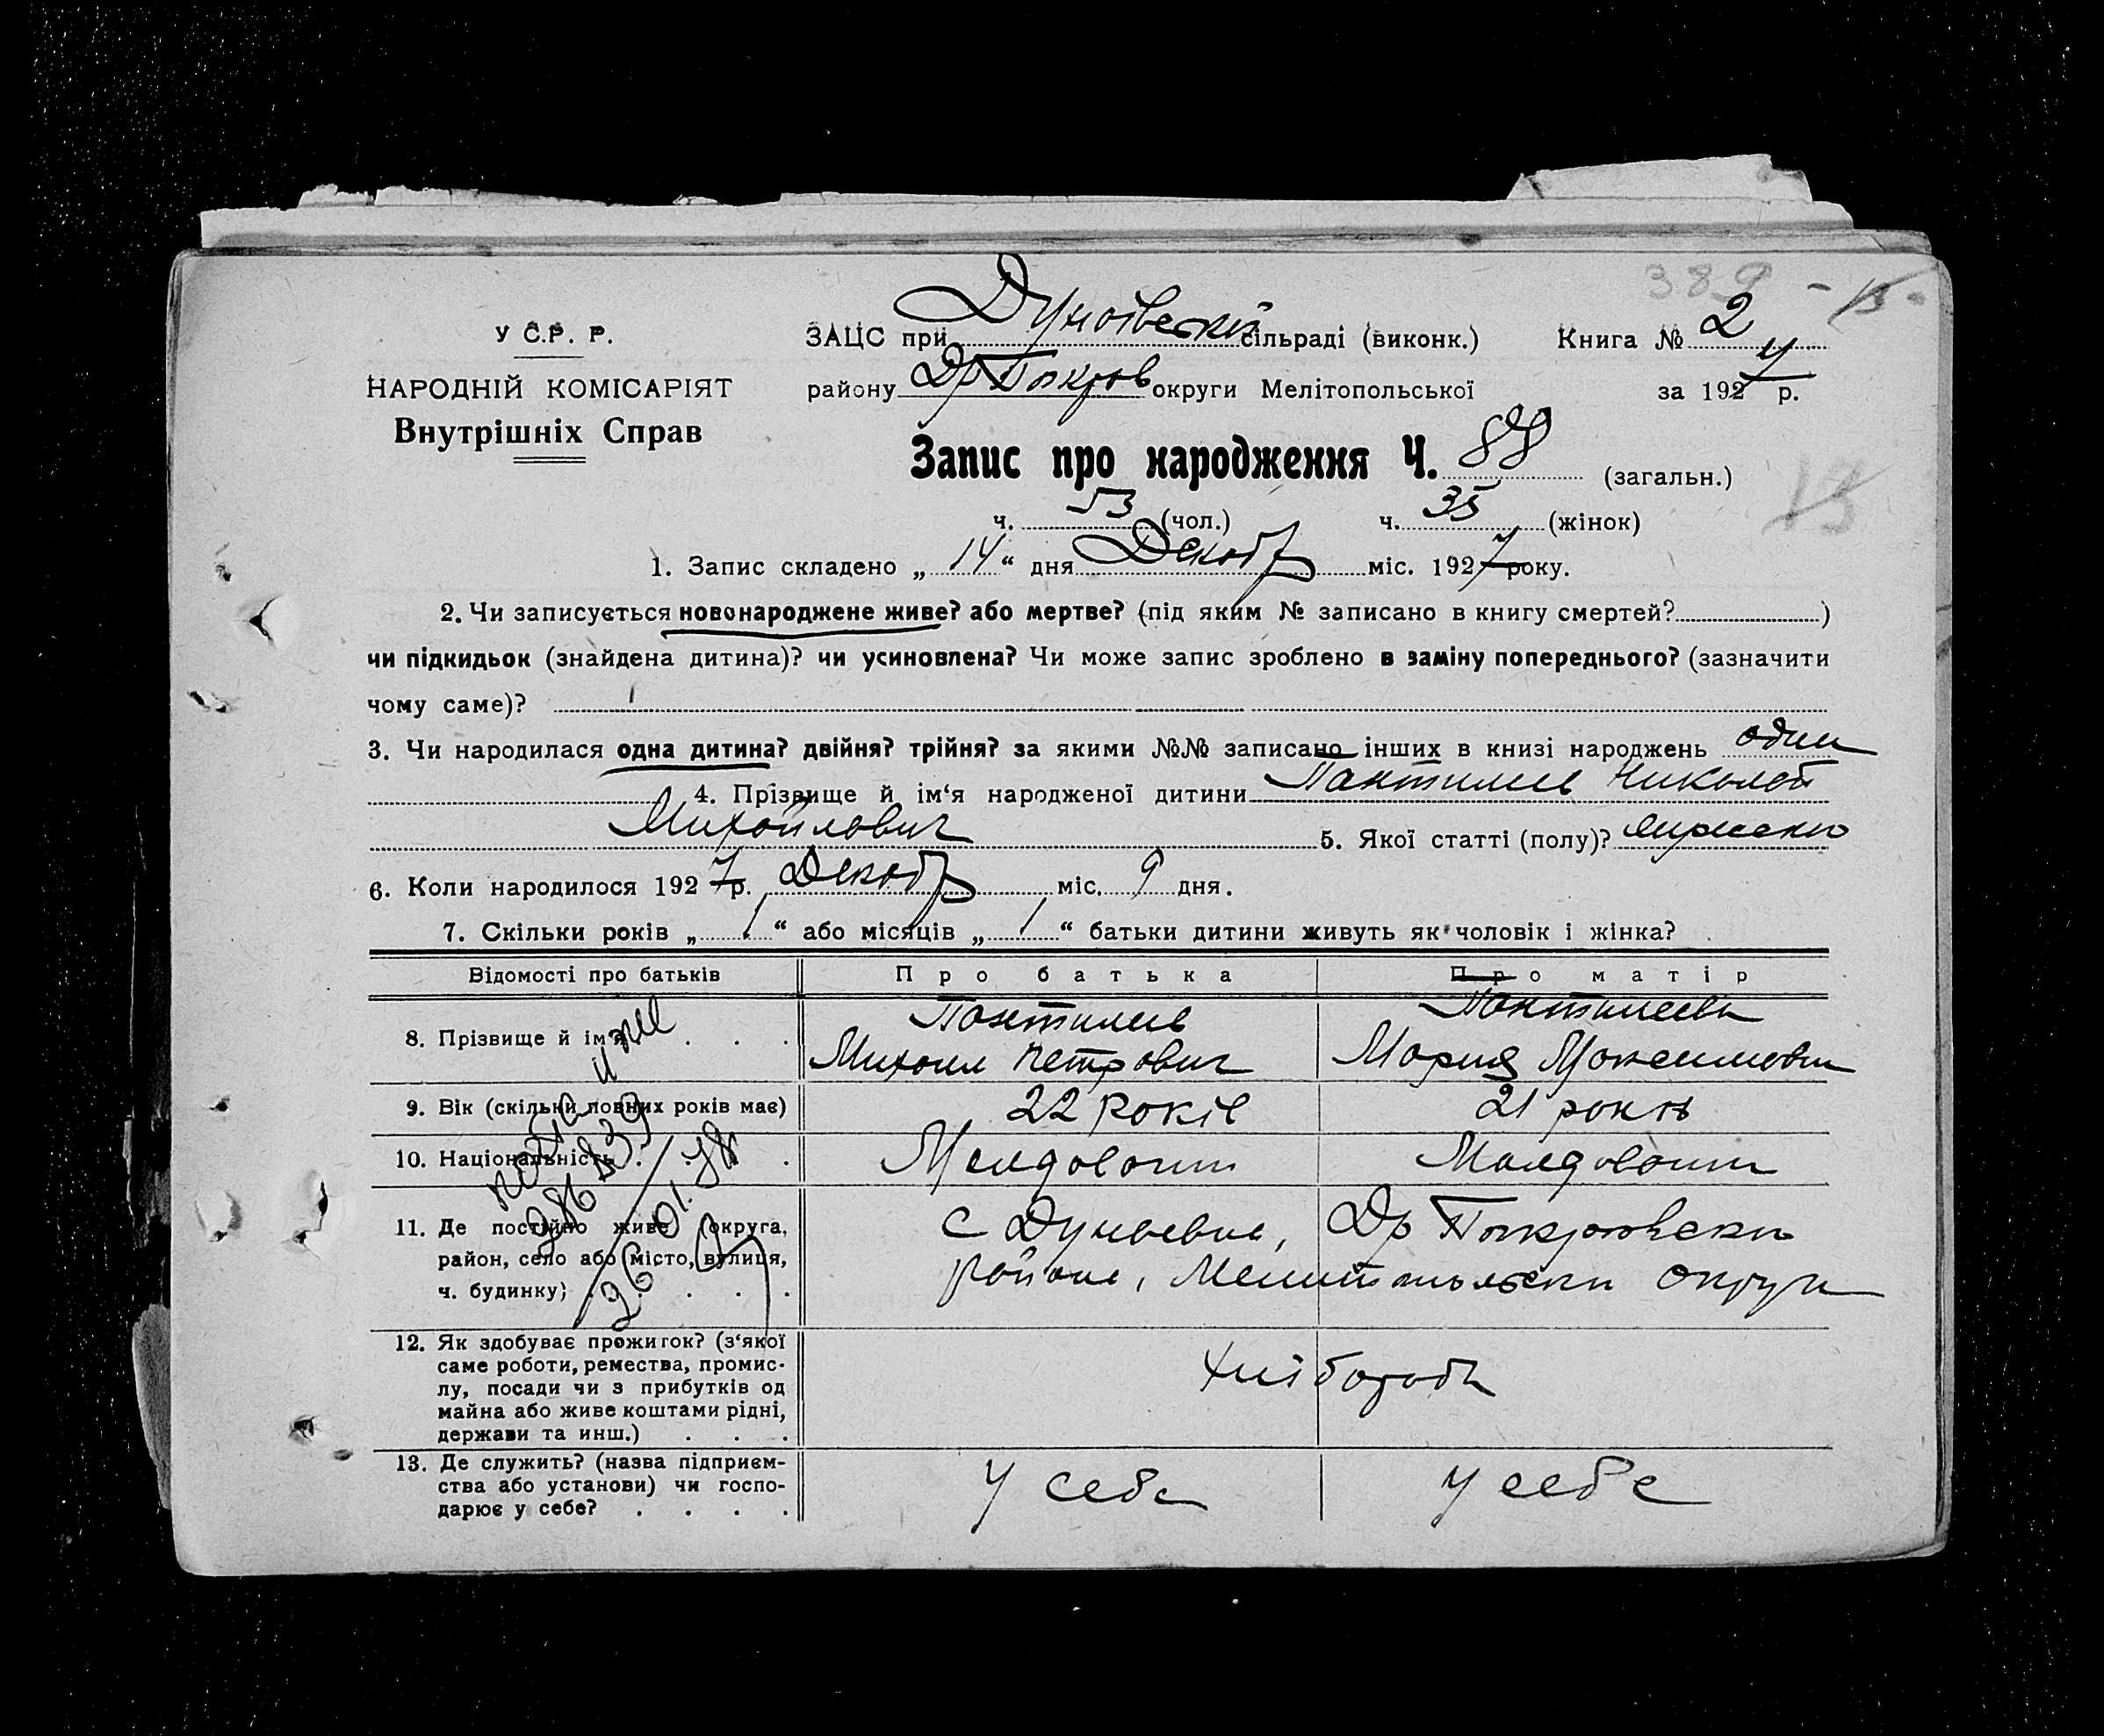 389 - 13 -
У С.Р. Р.
НАРОДНІЙ КОМІСАРІЯТ
Внутрішніх Справ
ЗАЦС при Дунаївській сільраді (виконк.) Книга № 2
району Др Покров округи Мелітопольської за 1927 р.
Запис про народження Ч. 88 (загальн.)
13
ч. 53 (чол.) ч. 35 (жінок)
1. Запис складено „ 14 “ дня Декабр міс. 1927 року.
2. Чи записується новонароджене живе? або мертве? (під яким № записано в книгу смертей? )
чи підкидьок (знайдена дитина)? чи усиновлена? Чи може запис зроблено в заміну попереднього? (зазначити
чому саме)?
3. Чи народилася одна дитина? двійня? трійня? за якими №№ записано інших в книзі народжень один
4. Прізвище й ім‘я народженої дитини Пантилеев Николай
Михайлович 5. Якої статті (полу)?
6. Коли народилося 1927 р. Декабр міс. 9 дня.
7. Скільки років „ 1 “ або місяців „ 1 “ батьки дитини живуть як чоловік і жінка?
Відомості про батьків Про батька Про матір
8. Прізвище й ім‘я . . . Пантилеев Пантилеева
Михаил Петрович Мария Максимовна
9. Вік (скільки повних років має) 22 років 21 років
10. Національність . . . Молдовани Молдовани
11. Де постійно живе (округа,
район, село або місто, вулиця,
ч. будинку; . . . .
с Дунаевка, Др Покровски
района, Мелитопольски округи
12. Як здобуває прожиток? (з‘якої
саме роботи, ремества, промис-
лу, посади чи з прибутків од
майна або живе коштами рідні,
держави та инш.) . . .
хліборобы
13. Де служить? (назва підприєм-
ства або установи) чи госпо-
дарює у себе? . . . .
у себе у себе